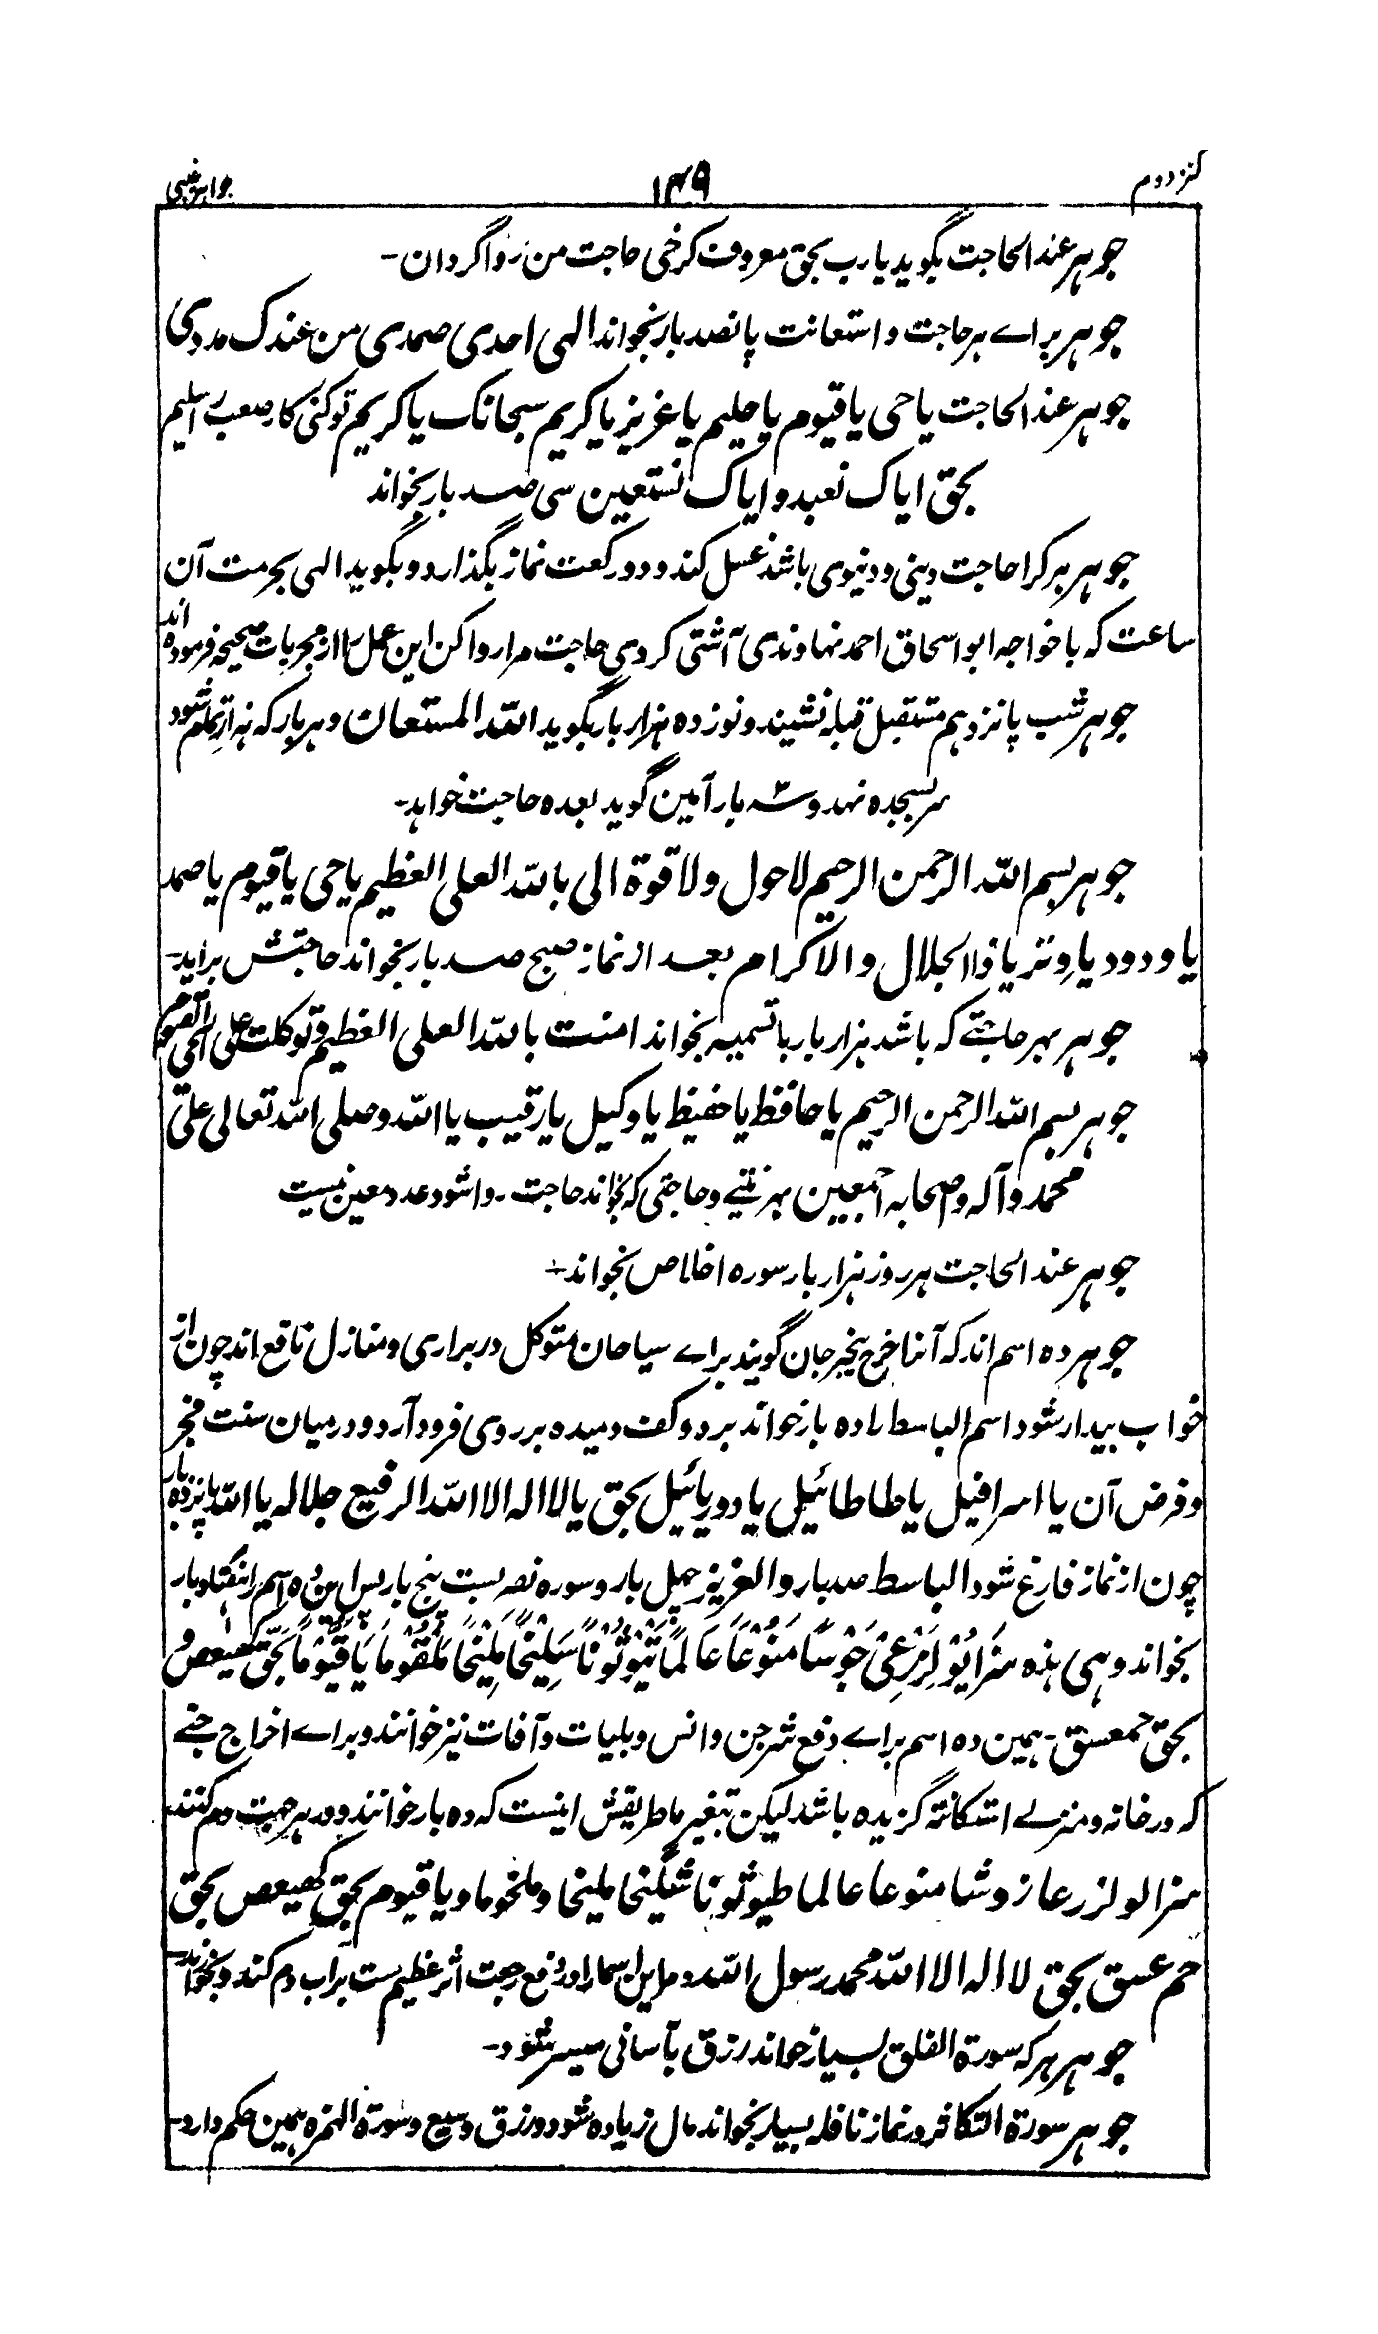 کنز دوم
۱۴۹
جواہر غیبی
جوہر عند الحاجت بگوید یا رب بحق معروف کرخی حاجت من روا گردان -
جوہر براے ہر حاجت و استعانت پانصد بار بخواند الہی احدی صمدی من عندک مددی
جوہر عند الحاجت یا حی یا قیوم یا حلیم یا عزیز یا کریم سبحانک یا کریم تو کنی کار صعب را سلیم
بحق ایاک نعبد و ایاک نستعین سی صد بار بخواند
جوہر ہر کرا حاجت دینی و دنیوی باشد غسل کند و دو رکعت نماز بگذارد و بگوید الہی بحرمت آن
ساعت کہ با خواجہ ابو اسحاق احمد نہاوندی آشتی کردی حاجت مرا روا کن این عمل را از مجربات صحیحہ فرمودہ اند
جوہر شب پانزدہم مستقبل قبلہ نشیند و نوزدہ ہزار بار بگوید اللہ المستعان و ہر بار کہ ہزار تمام شود
سر بسجدہ نہد و سہ بار آمین گوید بعدہ حاجت خواہد -
جوہر بسم اللہ الرحمن الرحیم لا حول ولا قوة الی باللہ العلی العظیم یا حی یا قیوم یا صمد
یا ودود یا وتر یا ذا الجلال والاکرام بعد از نماز صبح صد بار بخواند حاجتش براید -
جوہر بہر حاجتے کہ باشد ہزار بار با تسمیہ بخواند امنت باللہ العلی العظیم و توکلت علی الحی القیوم
جوہر بسم اللہ الرحمن الرحیم یا حافظ یا حفیظ یا وکیل یا رقیب یا اللہ و صلی اللہ تعالی علی
محمد و آلہ و صحابہ اجمعین بہر نیتے و حاجتی کہ بخواند حاجت - وا شود عدد معین نیست
جوہر عند الحاجت ہر روز ہزار بار سورہ اخلاص بخواند -
جوہر دہ اسم اند کہ آنرا خرج بخیر جان گویند براے سیاحان متوکل در براری و منازل نافع اند چون از
خواب بیدار شود اسم الباسط را دہ بار خواند بر دو کف دمیدہ بر روی فرود آرد و درمیان سنت فجر
و فرض آن یا اسرافیل یا طاطائیل یا دوریائیل بحق یا لا الہ الا اللہ الرفیع جلالہ یا اللہ پانزدہ بار
چون از نماز فارغ شود الباسط صد بار و العزیز چہل بار و سورہ نصر بست پنج بار پس این دہ اسم را ہفتاد بار
بخواند و ہی ہذہ سَرَایُوْ لِرَمْرِعِیْ جَوْسًا مَنُوْعًا عَالِمًا تَیْوُثُوْنًا سَلِیْخًا مَلِیْخًا مَلْقُوْمًا یَا قَیُّوْمًا بحق کہیعص و
بحق حمعسق - ہمین دہ اسم براے دفع شر جن و انس و بلیات و آفات نیز خوانند و براے اخراج جنے
کہ در خانہ و منزلے استکانتہ گزیدہ باشد لیکن بتغیر ما طریقش اینست کہ دہ بار خوانند و در ہر جہت دم کنند
سرا لو لزرعا زوشا منوعا عالما طیوثونا شلیخا ملیخا و ملخوما و یا قیوم بحق کہیعص بحق
حم عسق بحق لا الہ الا اللہ محمد رسول اللہ و مر این اسما را در دفع رجعت اثر عظیم ست بر آب دم کند و بخوراند -
جوہر ہر کہ سورة الفلق بسیار خواند رزق بآسانی میسر شود -
جوہر سورة التکاثر در نماز نافلہ بسیار بخواند مال زیادہ شود و رزق وسیع و سورة الہمزہ ہمین حکم دارد -